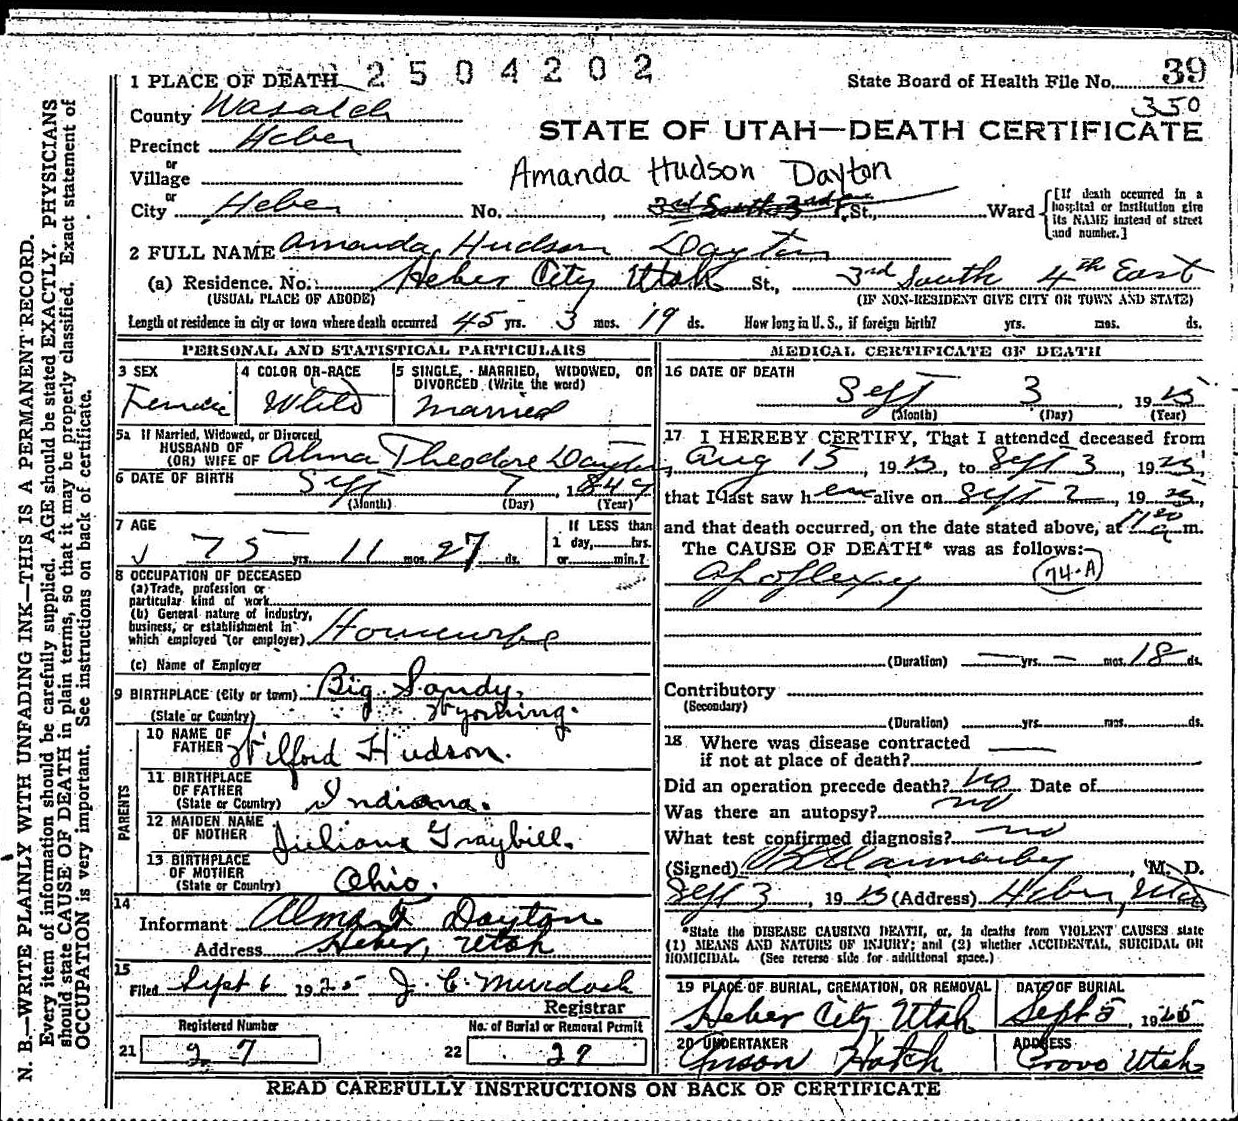 1 PLACE OF DEATH 2504202 State Board of Health File No. 39
County Wasatch 350
STATE OF UTAH—DEATH CERTIFICATE
Precinct Heber
or
Village
Amanda Hudson Dayton
or
City Heber No. , 3rd South 3rd St., Ward [If death occurred in a hospital or institution give its NAME instead of street and number.]
2 FULL NAME Amanda Hudson Dayton
(a) Residence. No. Heber City Utah St., 3rd South 4th East
(USUAL PLACE OF ABODE) (IF NON-RESIDENT GIVE CITY OR TOWN AND STATE)
Length of residence in city or town where death occurred 45 yrs. 3 mos. 19 ds. How long in U. S., if foreign birth? yrs. mos. ds.
PERSONAL AND STATISTICAL PARTICULARS
3 SEX
Female
4 COLOR OR RACE
White
5 SINGLE, MARRIED, WIDOWED, OR
DIVORCED (Write the word)
Married
5a If Married, Widowed, or Divorced
HUSBAND OF
(OR) WIFE OF Alma Theodore Dayton
6 DATE OF BIRTH Sept 7, 1849
(Month) (Day) (Year)
7 AGE
75 yrs. 11 mos. 27 ds.
If LESS than
1 day, hrs.
or min.?
8 OCCUPATION OF DECEASED
(a) Trade, profession or
particular kind of work
(b) General nature of industry,
business, or establishment in
which employed (or employer) Housewife
(c) Name of Employer
9 BIRTHPLACE (City or town) Big Sandy,
(State or Country) Wyoming.
PARENTS
10 NAME OF
FATHER Wilford Hudson.
11 BIRTHPLACE
OF FATHER
(State or Country) Indiana.
12 MAIDEN NAME
OF MOTHER Juliana Graybill.
13 BIRTHPLACE
OF MOTHER
(State or Country) Ohio.
14
Informant Alma T Dayton
Address Heber, Utah
15
Filed Sept 6 1925 J. C. Murdock
Registrar
Registered Number
21 27
No. of Burial or Removal Permit
22 27
MEDICAL CERTIFICATE OF DEATH
16 DATE OF DEATH
Sept 3, 1925
(Month) (Day) (Year)
17 I HEREBY CERTIFY, That I attended deceased from
Aug 15, 1925, to Sept 3, 1925,
that I last saw her alive on Sept 2, 1925,
and that death occurred, on the date stated above, at 11 a m.
The CAUSE OF DEATH* was as follows:
Apoplexy 74-A
(Duration) — yrs. — mos. 18 ds.
Contributory
(Secondary)
(Duration) yrs. mos. ds.
18 Where was disease contracted
if not at place of death?
Did an operation precede death? no Date of
Was there an autopsy? no
What test confirmed diagnosis? no
(Signed) , M. D.
Sept 3, 1925 (Address) Heber, Utah
*State the DISEASE CAUSING DEATH, or, in deaths from VIOLENT CAUSES state
(1) MEANS AND NATURE OF INJURY; and (2) whether ACCIDENTAL, SUICIDAL OR
HOMICIDAL. (See reverse side for additional space.)
19 PLACE OF BURIAL, CREMATION, OR REMOVAL
Heber City Utah
DATE OF BURIAL
Sept 5, 1925
20 UNDERTAKER
Hatch
ADDRESS
Provo Utah
READ CAREFULLY INSTRUCTIONS ON BACK OF CERTIFICATE
N. B.—WRITE PLAINLY WITH UNFADING INK—THIS IS A PERMANENT RECORD.
Every item of information should be carefully supplied. AGE should be stated EXACTLY. PHYSICIANS
should state CAUSE OF DEATH in plain terms, so that it may be properly classified. Exact statement of
OCCUPATION is very important. See instructions on back of certificate.